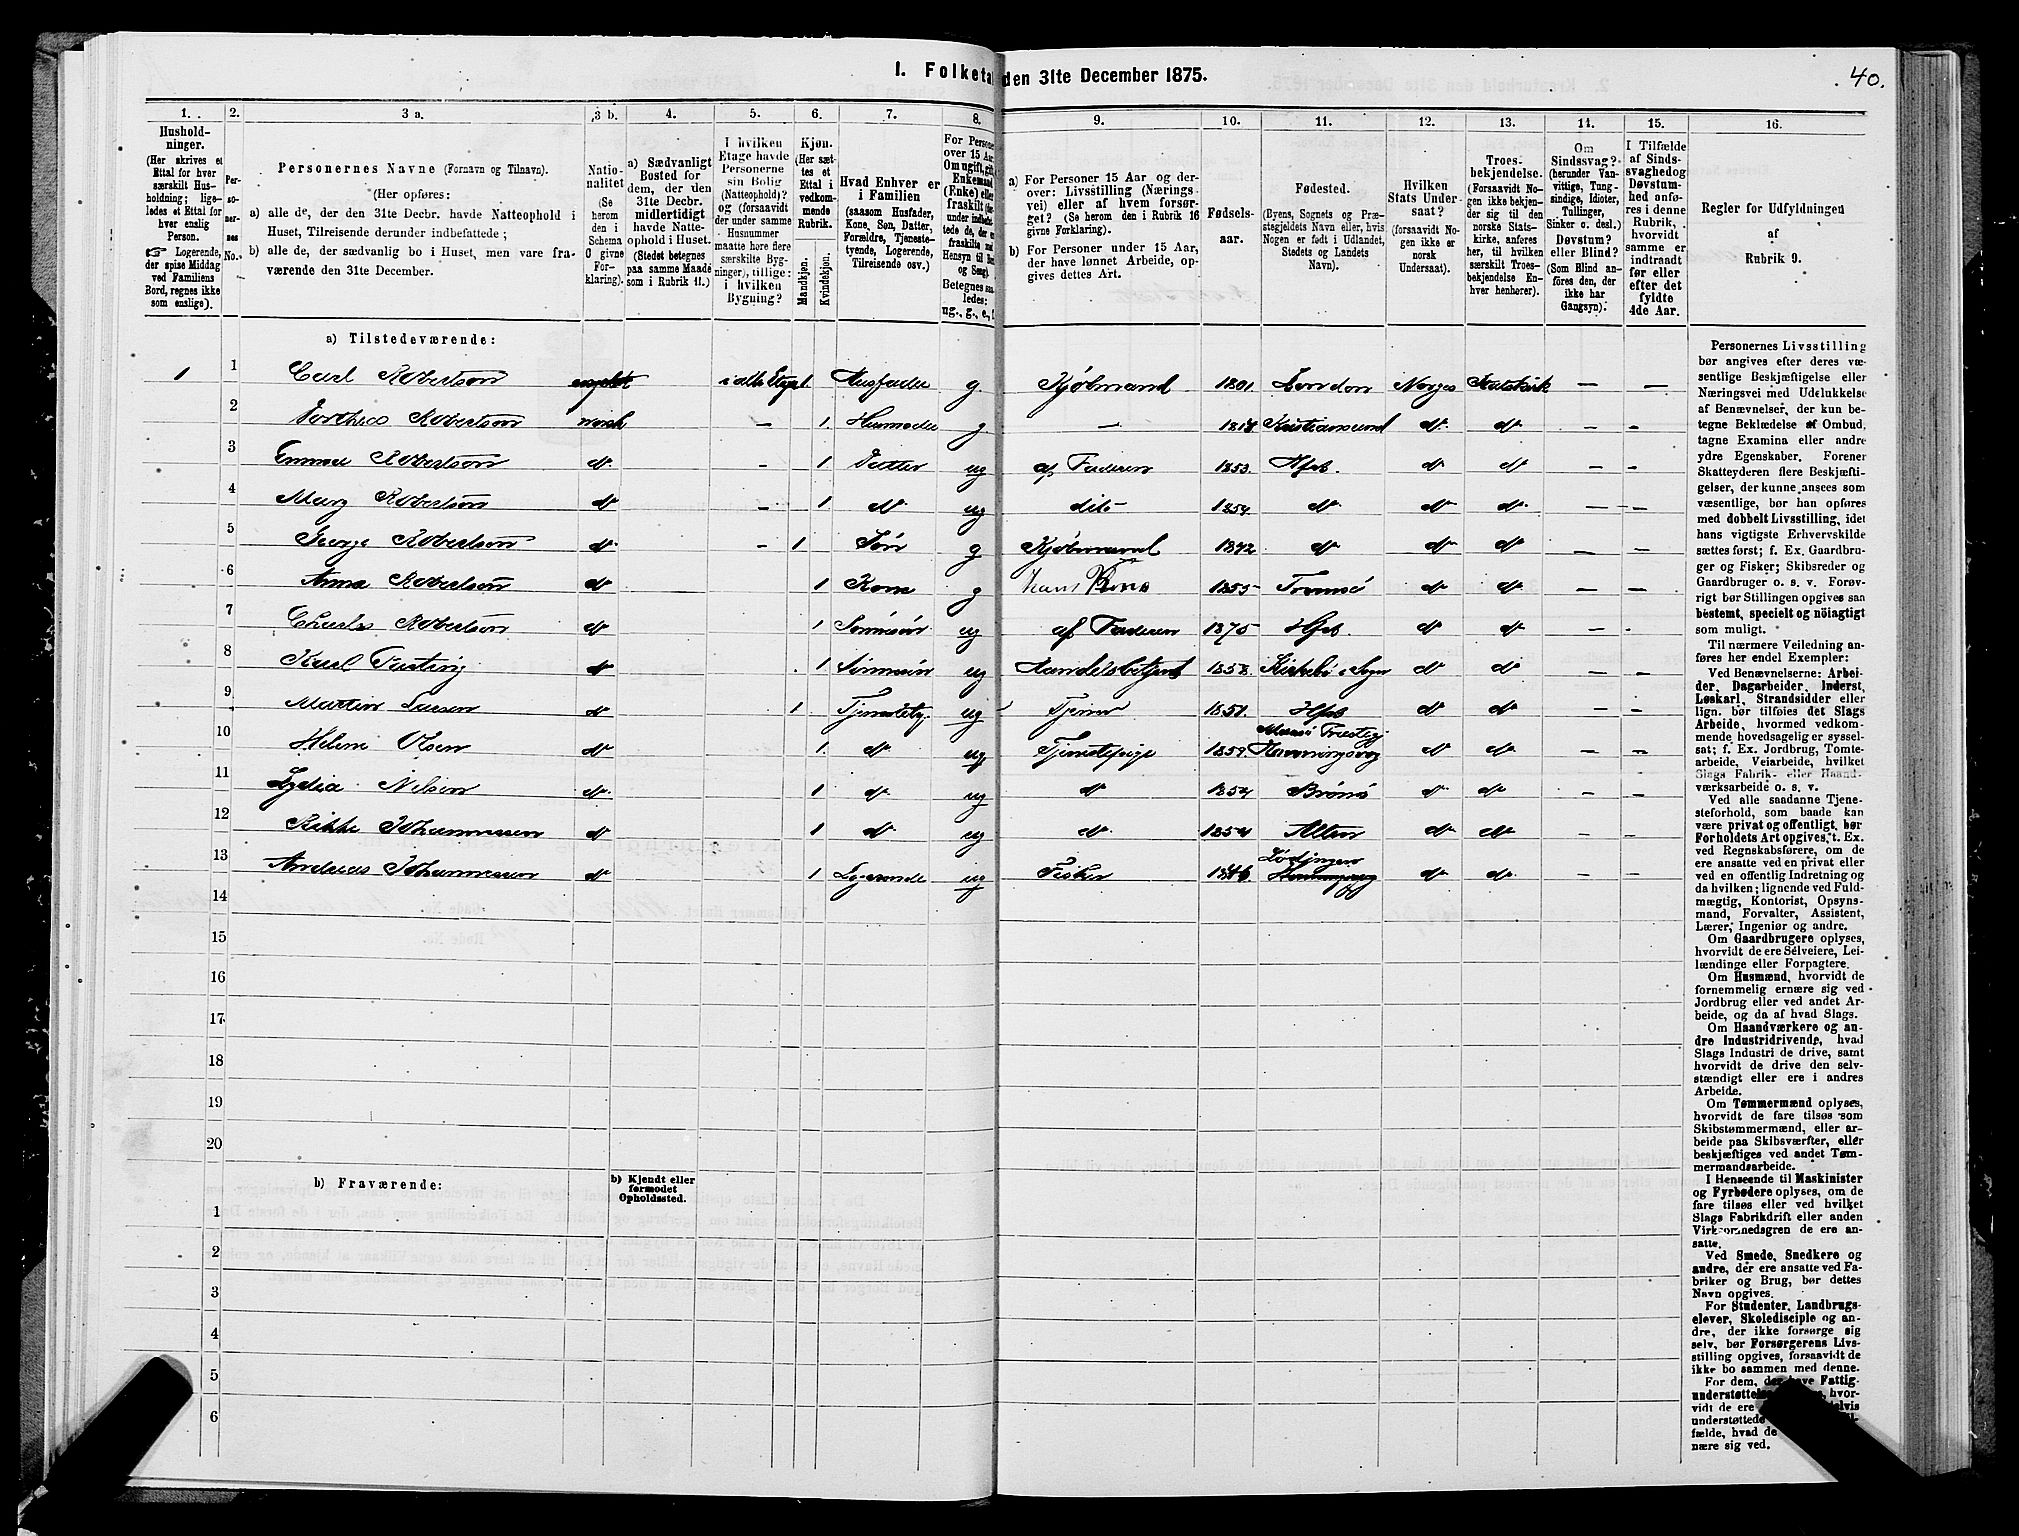 40.
I. Folketal den 31te December 1875.
1. 2. 3 a. 3 b. 4. 5. 6. 7. 8. 9. 10. 11. 12. 13. 14. 15. 16.
Hushold-
ninger.
(Her skrives et
Ettal for hver
særskilt Hus-
holdning; lige-
ledes et Ettal for
hver enslig
Person.
☞ Logerende,
der spise Middag
ved Familiens
Bord, regnes ikke
som enslige).
Per-
so-
ner-
nes
No.
Personernes Navne (Fornavn og Tilnavn).
(Her opføres:
a) alle de, der den 31te Decbr. havde Natteophold i
Huset, Tilreisende derunder indbefattede;
b) alle de, der sædvanlig bo i Huset, men vare fra-
værende den 31te December.
Natio-
nalitet
(Se
herom
den i
Schema
O givne
For-
klaring).
a) Sædvanligt
Bosted for
dem, der den
31te Decbr.
midlertidigt
havde Natte-
ophold i Huset.
(Stedet betegnes
paa samme Maade
som i Rubrik 11.)
I hvilken
Etage havde
Personerne
sin Bolig
(Natteophold)?
og (forsaavidt
der under samme
Husnummer
maatte høre flere
særskilte Byg-
ninger), tillige:
i hvilken
Bygning?
Kjøn.
(Her sæt-
tes et
Ettal i
vedkom-
mende
Rubrik.
Mandkjøn.
Kvindekjøn.
Hvad Enhver er
i Familien
(saasom Husfader,
Kone, Søn, Datter,
Forældre, Tjeneste-
tyende, Logerende,
Tilreisende osv.)
For Personer
over 15 Aar:
Om ugift, gift,
Enkemand
(Enke) eller
fraskilt
Betegnes saa-
ledes:
ug., g., e., f.
a) For Personer 15 Aar og der-
over: Livsstilling (Nærings-
vei) eller af hvem forsør-
get? (Se herom den i Rubrik 16
givne Forklaring).
b) For Personer under 15 Aar,
der have lønnet Arbeide, op-
gives dettes Art.
Fødsels-
aar.
Fødested.
(Byens, Sognets og Præ-
stegjeldets Navn eller, hvis
Nogen er født i Udlandet,
Stedets og Landets
Navn).
Hvilken
Stats Under-
saat?
(forsaavidt No-
gen ikke er
norsk
Undersaat).
Troes-
bekjendelse.
(Forsaavidt No-
gen ikke bekjen-
der sig til den
norske Stats-
kirke, anføres
her, til hvilken
særskilt Troes-
bekjendelse En-
hver henhører).
Om
Sindssvag?
(herunder Van-
vittige, Tung-
sindige, Idioter,
Tullinger,
Sinker o. desl.)
Døvstum?
eller Blind?
(Som Blind an-
føres den, der
ikke har
Gangsyn).
I Tilfælde
af Sinds-
svaghed og
Døvstum-
hed anfø-
res i denne
Rubrik,
hvorvidt
samme er
indtraadt
før eller
efter det
fyldte
4de Aar.
Regler for Udfyldningen
af
Rubrik 9.
a) Tilstedeværende:
1 1 Carl Robertson engelsk i alle Etager Husfader g Kjøbmand 1801 London Norges Statskirk — —
2 Dorthea Robertson norsk — 1. Husmoder g. — 1817 Kristiansund do do — -
3 Emma Robertson do - 1 Datter ug af Faderen 1853. Hfst. do do — -
4 Mary Robertson do - 1 do ug dito 1854. do do do — -
5 George Robertson do - 1 Søn g Kjøbmand 1842 do do do — —
6 Anna Robertson do 1 Kone g hans Kone 1855 Tromsø do do — —
7 Charles Robertson do 1 Sønnesøn ug af Faderen 1875 Hfst. do do — -
8 Karl do 1 Sønnesøn ug Handelsbetjent 1858. Sogn do do — —
9 Martin do 1 ug Tjener 1851. Hfst. do do — —
10 Helene Olsen do 1. do ug Tjenestepige 1859. Honningsvåg do do — —
11 Lydia Nilsen do 1 do ug do 1854 Brønø do do — —
12 Rikke Johannessen do 1 do ug do 1854 Alten do do — —
13 Andreas Johannessen do 1 Logerende ug Fisker 1846 Lødingen do do — —
14
15
16
17
18
19
20
b) Fraværende:
b) Kjendt eller
formodet
Opholdssted.
1
2
3
4
5
6
Personernes Livsstilling
bør angives efter deres væ-
sentlige Beskjæftigelse eller
Næringsvei med Udelukkelse
af Benævnelser, der kun be-
tegne Beklædelse af Ombud,
tagne Examina eller andre
ydre Egenskaber. Forener
Skatteyderen flere Beskjæfti-
gelser, der kunne ansees som
væsentlige, bør han opføres
med dobbelt Livsstilling, idet
hans vigtigste Erhvervskilde
sættes først; f. Ex. Gaardbru-
ger og Fisker; Skibsreder og
Gaardbruger o. s. v. Forøv-
rigt bør Stillingen opgives saa
bestemt, specielt og nöiagtigt
som muligt.
Til nærmere Veiledning an-
føres her endel Exempler:
Ved Benævnelserne: Arbei-
der, Dagarbeider, Inderst,
Løskarl, Strandsidder eller
lign. bør tilføies det Slags
Arbeide, hvormed vedkom-
mende hovedsagelig er syssel-
sat; f. Ex. Jordbrug, Tomte-
arbeide, Veiarbeide, hvilket
Slags Fabrik- eller Haand-
værksarbeide o. s. v.
Ved alle saadanne Tjene-
steforhold, som baade kan
være privat og offentligt, bør
Forholdets Art opgives, f. Ex.
ved Regnskabsførere, om de
ere ansatte ved en privat eller
ved en offentlig Indretning og
da hvilken; lignende ved Fuld-
mægtig, Kontorist, Opsyns-
mand, Forvalter, Assistent,
Lærer, Ingeniør og andre.
Om Gaardbrugere oplyses,
hvorvidt de ere Selveiere, Lei-
lændinge eller Forpagtere.
Om Husmænd, hvorvidt de
fornemmelig ernære sig ved
Jordbrug eller ved andet Ar-
beide, og da af hvad Slags.
Om Haandværkere og an-
dre Industridrivende, hvad
Slags Industri de drive, samt
hvorvidt de drive den selv-
stændigt eller ere i andres
Arbeide.
Om Tømmermænd oplyses,
hvorvidt de fare tilsøs som
Skibstømmermænd, eller ar-
beide paa Skibsværfter, eller
beskjæftiges ved andet Tøm-
mermandsarbeide.
I Henseende til Maskinister
og Fyrbødere oplyses, om de
fare tilsøs eller ved hvilket
Slags Fabrikdrift eller anden
Virksomhedsgren de ere an-
satte.
Ved Smede, Snedkere og
andre, der ere ansatte ved Fa-
briker og Brug, bør dettes
Navn opgives.
For Studenter, Landbrugs-
elever, Skoledisciple og an-
dre, der ikke forsørge sig
selv, bør Forsørgerens Livs-
stilling opgives, forsaavidt de
ikke bo sammen med denne.
For dem, der have Fattig-
understøttelse, hvor-
vidt de ere
understøttede
fælde, hvad de
nære sig ved.